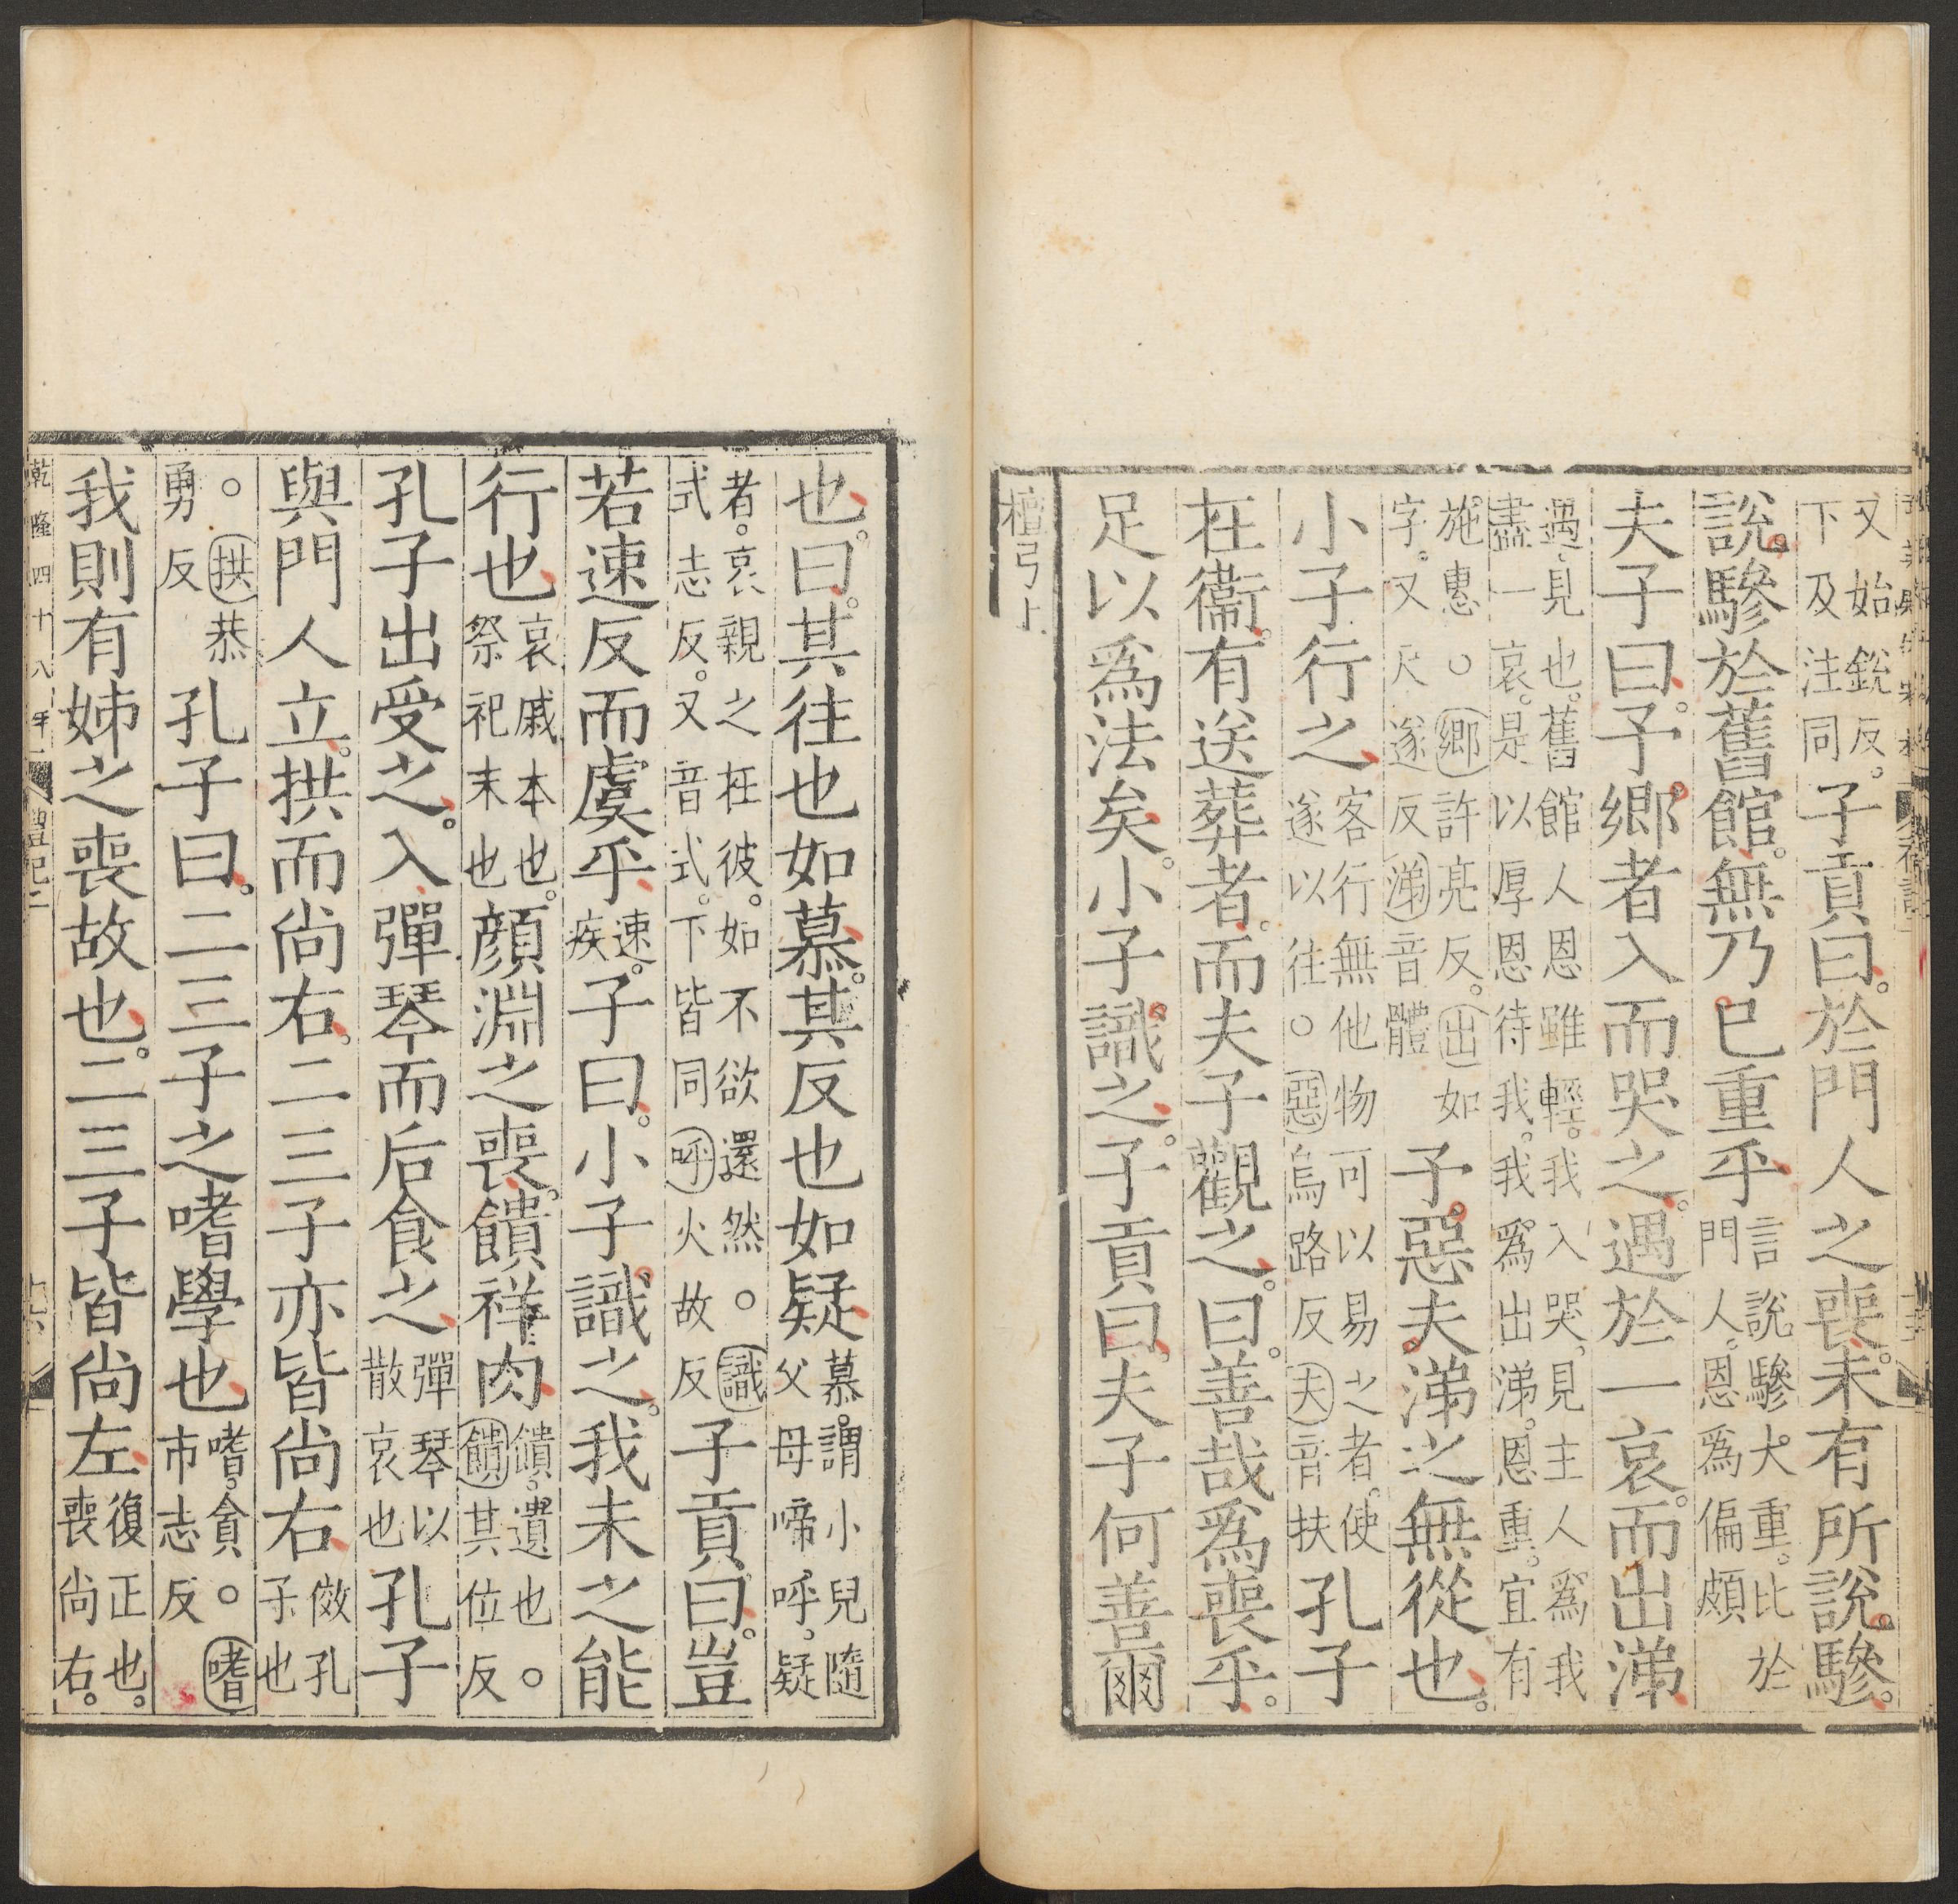 又始銳反。下及注同子貢曰。於門人之喪。未有所說。驂。
說。驂於舊館。無乃已重乎言說驂大重。比於門人。恩爲偏頗
夫子曰。予鄉者入而哭之。遇於一哀。而出涕
遇、見也。舊館人恩雖輕。我入哭、見主人爲我盡一哀。是以厚恩待我。我爲出涕。恩重。宜有
施惠。○鄉許亮反。出如字。又尺遂反涕音體予惡夫涕之無從也。
小子行之客行無他物可以易之者。使遂以往。○惡烏路反夫音扶孔子
在衞。有送葬者。而夫子觀之。曰。善哉爲喪乎。
足以爲法矣。小子識之。子貢曰。夫子何善爾
檀弓上
也。曰。其往也如慕。其反也如疑慕。謂小兒隨父母啼呼。疑
者。哀親之在彼。如不欲還然。○識式志反。又音式。下皆同呼火故反子貢曰。豈
若速反而虞乎速。疾子曰。小子識之。我未之能
行也哀戚本也。祭祀末也顏淵之喪。饋祥肉饋、遺也○饋其位反
孔子出受之。入彈琴而后食之彈琴以散哀也孔子
與門人立。拱而尚右。二三子亦皆尚右傚孔子也
○拱恭勇反孔子曰。二三子之嗜學也嗜、貪○嗜市志反
我則有姊之喪故也。二三子皆尚左復正也。喪尚右。
乾隆四十八年 禮記二 十六